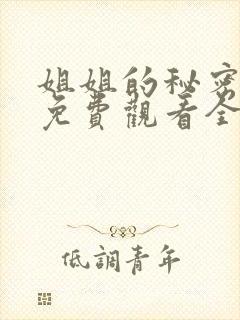 姐姐的秘密
免費觀看全
低調青年